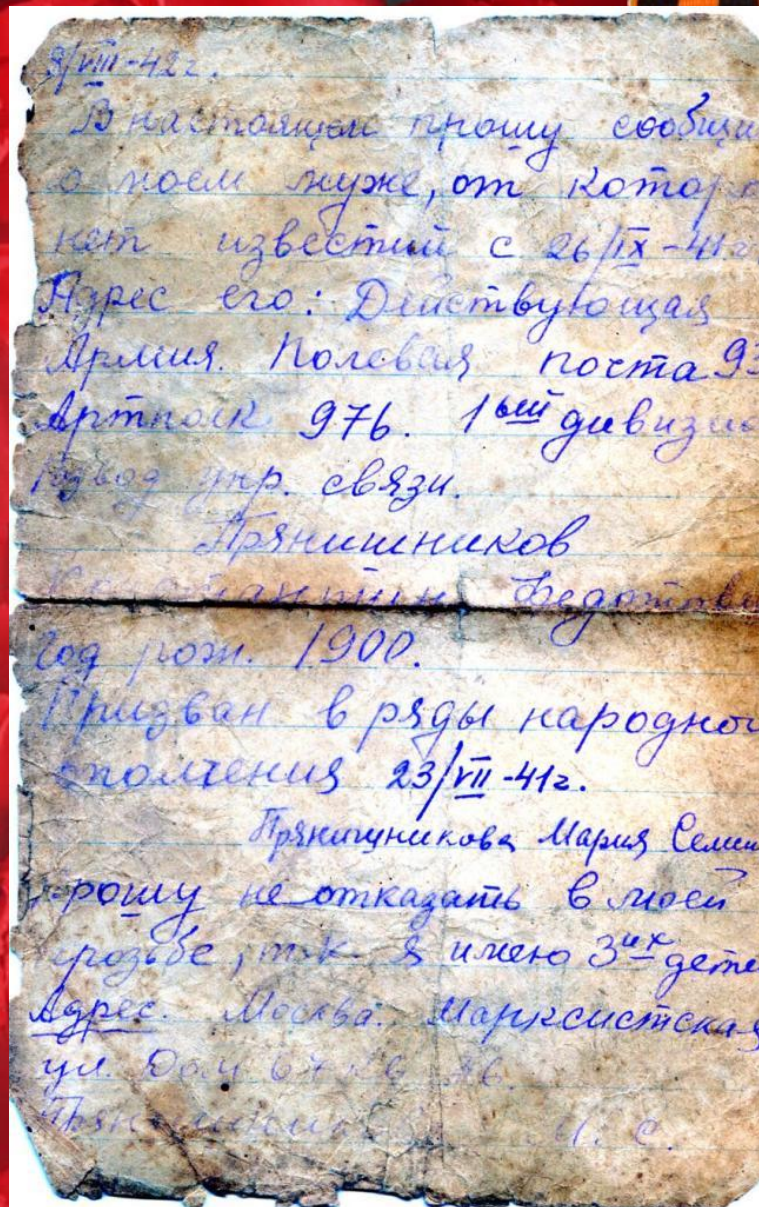 8/VIII-42г.
В настоящем прошу сообщи
о моем муже, от котор
нет известий с 26/IX-41г.
Адрес его: Действующая
Армия. Полевая почта 93
Артполк 976. 1ый дивизио
взвод упр. связи.
Прянишников
Константин Федотов
Год рож. 1900.
Призван в ряды народног
ополчения 23/VII-41г.
Прянишникова Мария Семен
Прошу не отказать в моей
прозьбе, т.к. я имею 3их дете
Адрес. Москва. Марксистская
ул. Дом
Прянишников М. С.